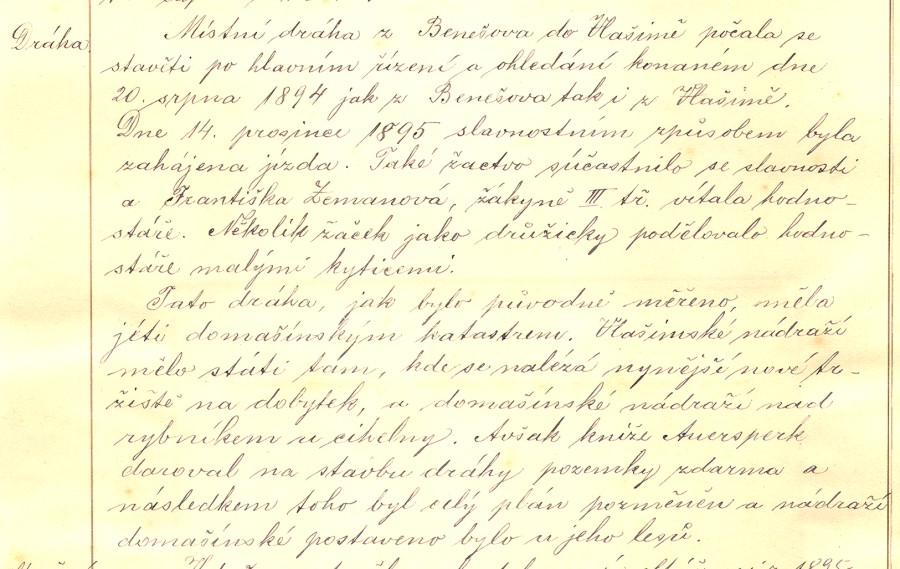 Dráha.
Místní dráha z Benešova do Vlašimě počala se
stavěti po hlavním řízení a ohledání konaném dne
20. srpna 1894 jak z Benešova tak i z Vlašimě.
Dne 14. prosince 1895 slavnostním způsobem byla
zahájena jízda. Také žactvo súčastnilo se slavnosti
a Františka Zemanová, žákyně III tř. vítala hodno-
stáře. Několik žaček jako družičky podělovalo hodno-
stáře malými kyticemi.
Tato dráha, jak bylo původně měřeno, měla
jíti domašínským katastrem. Vlašimské nádraží
mělo státi tam, kde se nalézá nynější nové tr-
žiště na dobytek, a domašínské nádraží nad
rybníkem u cihelny. Avšak kníže Auersperk
daroval na stavbu dráhy pozemky zdarma a
následkem toho byl celý plán pozměněn a nádraží
domašínské postaveno bylo u jeho lesů.